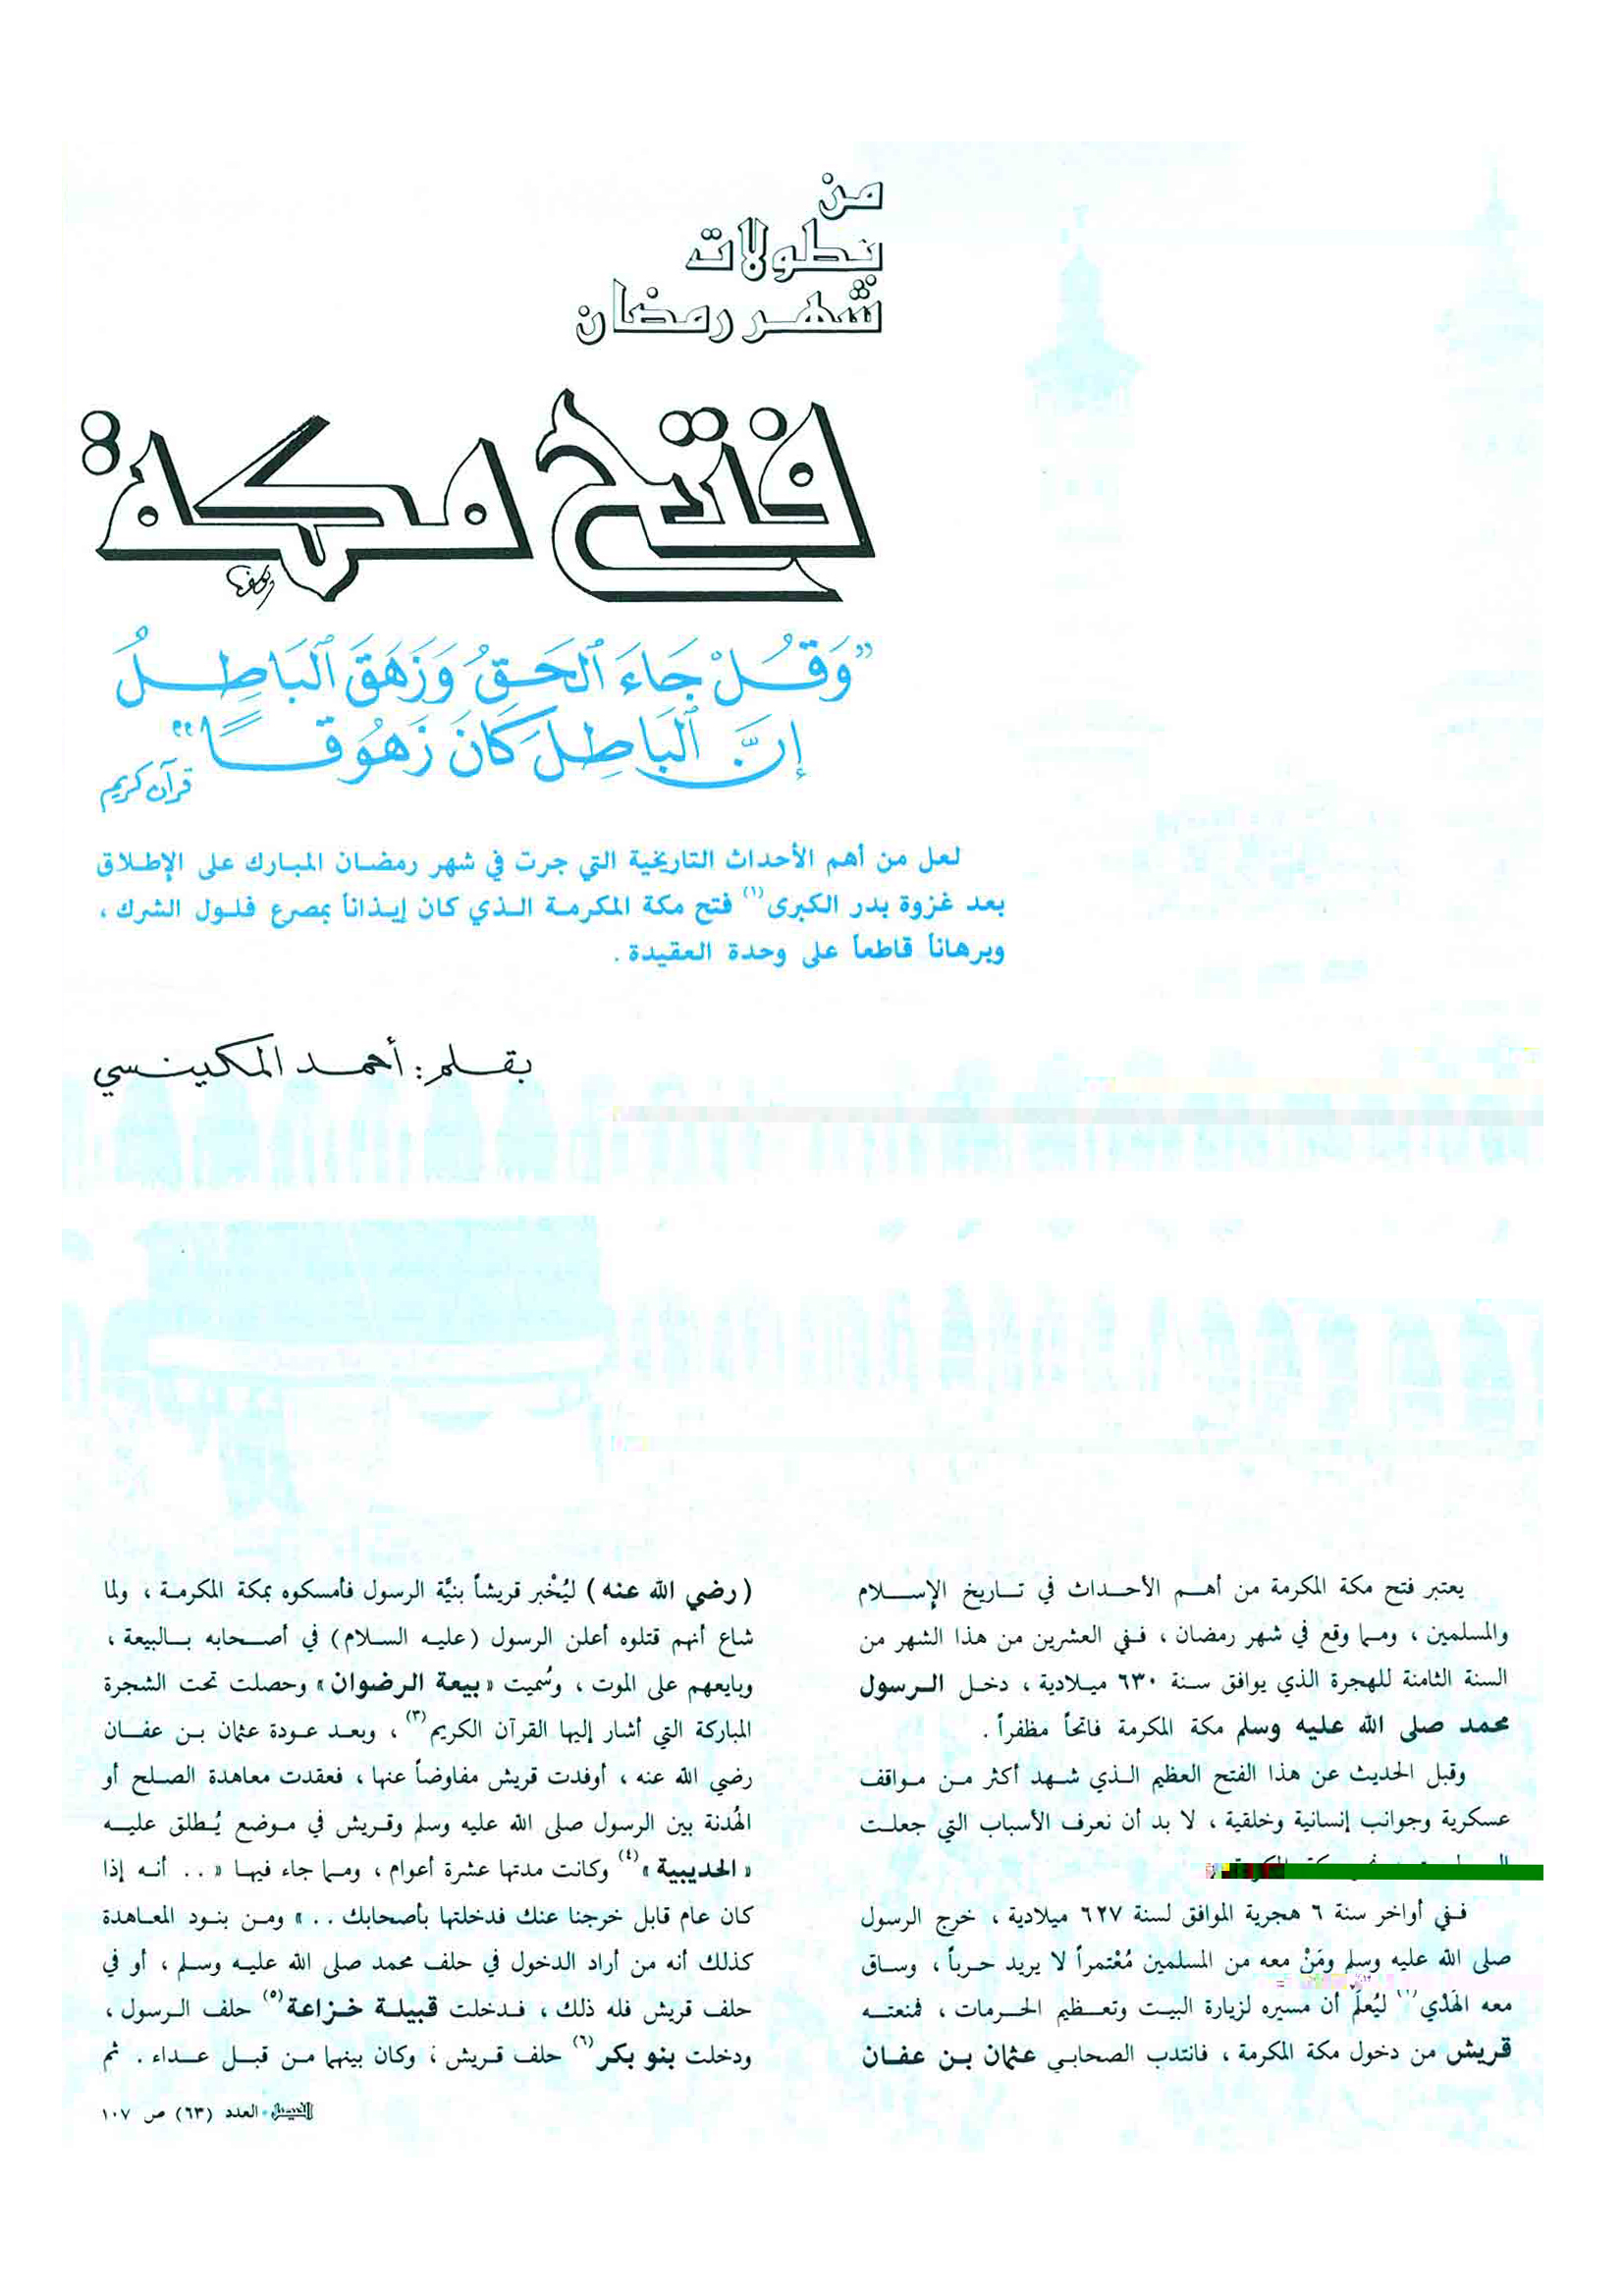 من
بطولات
شهر رمضان
فتح مكة
"وَقُلْ جَاءَ ٱلحَقُّ وَزَهَقَ ٱلبَاطِلُ
إنَّ ٱلبَاطِلَ كَانَ زَهُوقًا"
قرآن كريم
لعل من أهم الأحداث التاريخية التي جرت في شهر رمضان المبارك على الإطلاق
بعد غزوة بدر الكبرى(١) فتح مكة المكرمة الذي كان إيذاناً بمصرع فلول الشرك ،
وبرهاناً قاطعاً على وحدة العقيدة .
بقلم : أحمد المكينسي
يعتبر فتح مكة المكرمة من أهم الأحداث في تاريخ الإسلام
والمسلمين ، ومما وقع في شهر رمضان ، ففي العشرين من هذا الشهر من
السنة الثامنة للهجرة الذي يوافق سنة ٦٣٠ ميلادية ، دخل الرسول
محمد صلى الله عليه وسلم مكة المكرمة فاتحاً مظفراً .
وقبل الحديث عن هذا الفتح العظيم الذي شهد أكثر من مواقف
عسكرية وجوانب إنسانية وخلقية ، لا بد أن نعرف الأسباب التي جعلت
ففي أواخر سنة ٦ هجرية الموافق لسنة ٦٢٧ ميلادية ، خرج الرسول
صلى الله عليه وسلم ومَنْ معه من المسلمين مُعْتمراً لا يريد حرباً ، وساق
معه الهَدْي ليُعلَم أن مسيره لزيارة البيت وتعظيم الحرمات ، فمنعته
قريش من دخول مكة المكرمة ، فانتدب الصحابي عثمان بن عفان
(رضي الله عنه) ليُخْبر قريشاً بنيَّة الرسول فأمسكوه بمكة المكرمة ، ولما
شاع أنهم قتلوه أعلن الرسول (عليه السلام) في أصحابه بالبيعة ،
وبايعهم على الموت ، وسُميت «بيعة الرضوان» وحصلت تحت الشجرة
المباركة التي أشار إليها القرآن الكريم(٣) ، وبعد عودة عثمان بن عفان
رضي الله عنه ، أوفدت قريش مفاوضاً عنها ، فعقدت معاهدة الصلح أو
الهُدنة بين الرسول صلى الله عليه وسلم وقريش في موضع يُطلق عليه
«الحديبية»(٤) وكانت مدتها عشرة أعوام ، ومما جاء فيها «.. أنه إذا
كان عام قابل خرجنا عنك فدخلتها بأصحابك ..» ومن بنود المعاهدة
كذلك أنه من أراد الدخول في حلف محمد صلى الله عليه وسلم ، أو في
حلف قريش فله ذلك ، فدخلت قبيلة خزاعة(٥) حلف الرسول ،
ودخلت بنو بكر(٦) حلف قريش ، وكان بينهما من قبل عداء . ثم
الفيصل • العدد (٦٣) ص ١٠٧